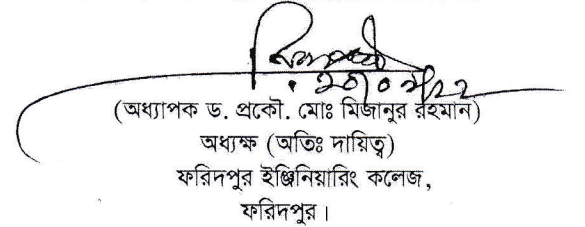 (অধ্যাপক ড. প্রকৌ. মোঃ মিজানুর রহমান)
অধ্যক্ষ (অতিঃ দায়িত্ব)
ফরিদপুর ইঞ্জিনিয়ারিং কলেজ,
ফরিদপুর।